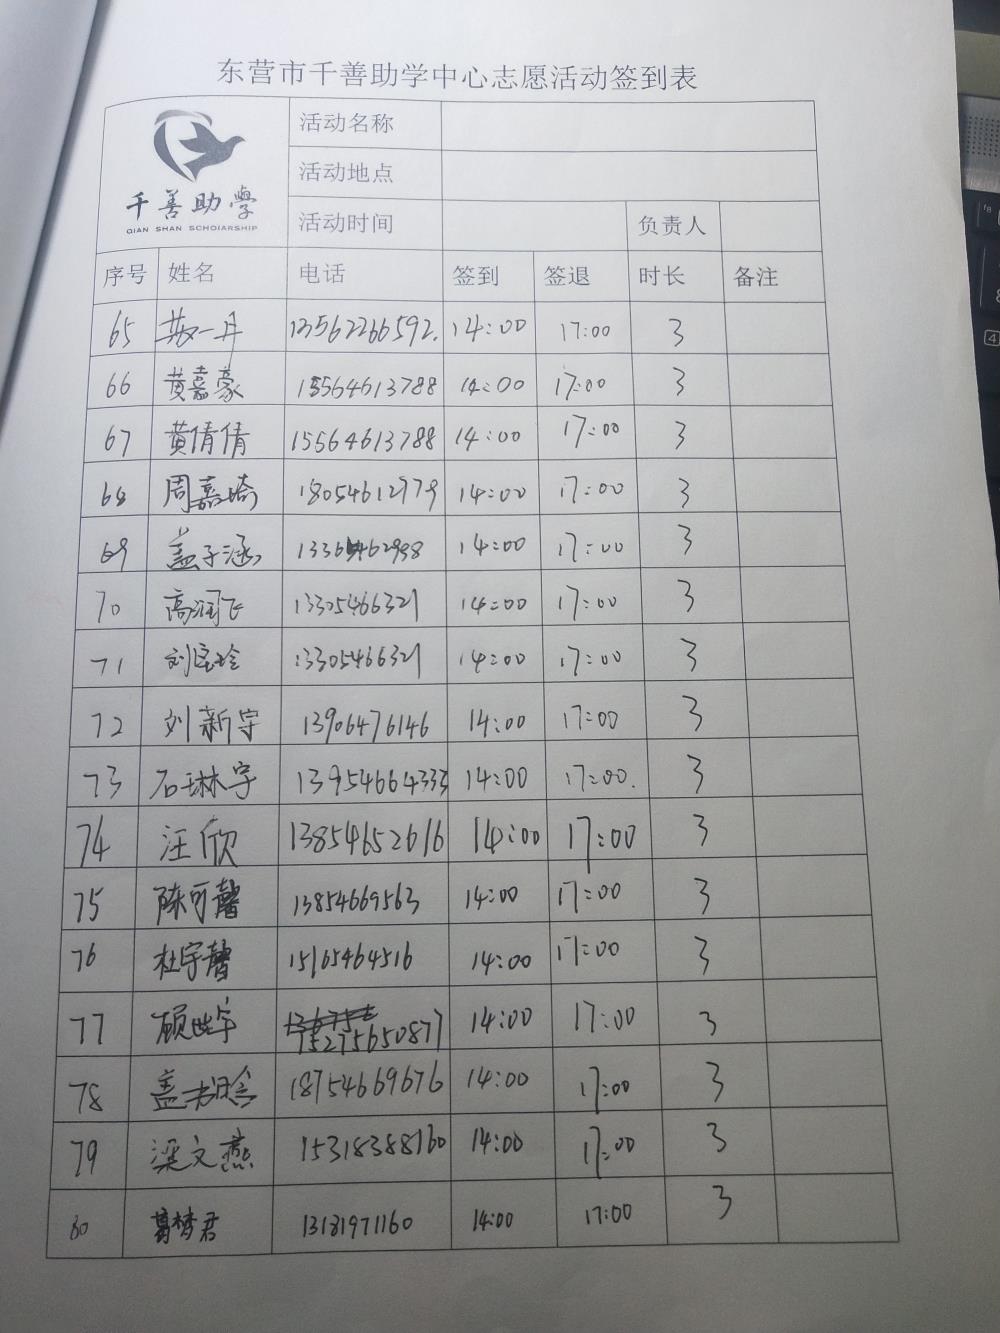 东营市千善助学中心志愿活动签到表
千善助學
QIAN SHAN SCHOLARSHIP
活动名称
活动地点
活动时间 负责人
序号 姓名 电话 签到 签退 时长 备注
65 一丹 13562266592. 14:00 17:00 3
66 黄嘉豪 15564613788 14:00 17:00 3
67 黄倩倩 15564613788 14:00 17:00 3
68 周嘉琦 18054612979 14:00 17:00 3
69 盖子涵 14:00 17:00 3
70 高润飞 13305466321 14:00 17:00 3
71 刘 13305466321 14:00 17:00 3
72 刘新宇 13906476146 14:00 17:00 3
73 石琳宇 13954664333 14:00 17:00. 3
74 汪欣 13854652616 14:00 17:00 3
75 陈可馨 13854669563 14:00 17:00 3
76 杜宇馨 15165464516 14:00 17:00 3
77 顾世宇 15275650877 14:00 17:00 3
78 盖书晗 18754669676 14:00 17:00 3
79 梁文燕 15318388160 14:00 17:00 3
80 葛梦君 13181971160 14:00 17:00 3